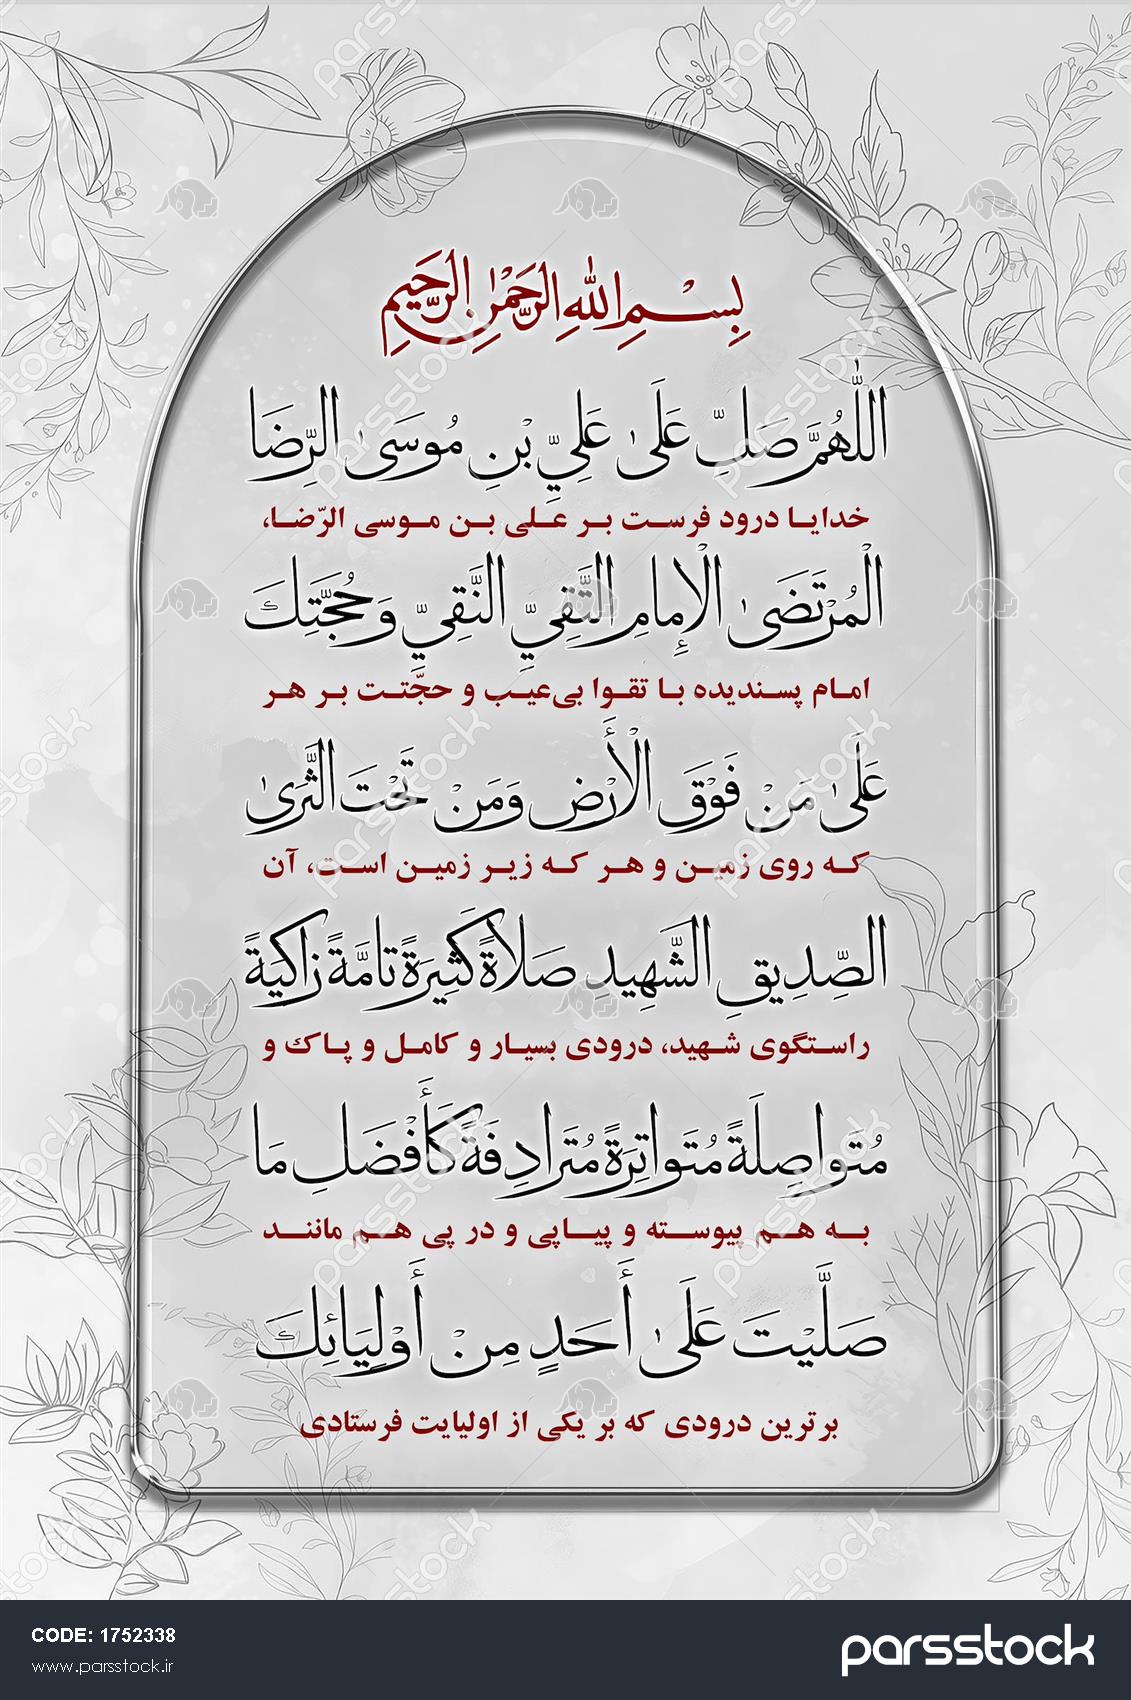 بِسْمِ اللهِ الرَّحْمٰنِ الرَّحِیمِ
اللّٰهُمَّ صَلِّ عَلَىٰ عَلِيِّ بْنِ مُوسَىٰ الرِّضَا
خدایا درود فرست بر علی بن موسی الرّضا،
الْمُرْتَضَىٰ الْإِمامِ التَّقِيِّ النَّقِيِّ وَحُجَّتِكَ
امام پسندیده با تقوا بی‌عیب و حجّتت بر هر
عَلَىٰ مَنْ فَوْقَ الْأَرْضِ وَمَنْ تَحْتَ الثَّرىٰ
که روی زمین و هر که زیر زمین است، آن
الصِّدِیقِ الشَّهِیدِ صَلاةً كَثِیرَةً تامَّةً زاكِیَةً
راستگوی شهید، درودی بسیار و کامل و پاک و
مُتَواصِلَةً مُتَواتِرَةً مُتَرادِفَةً كَأَفْضَلِ مَا
به هم پیوسته و پیاپی و در پی هم مانند
صَلَّیْتَ عَلَىٰ أَحَدٍ مِنْ أَوْلِیَائِكَ
برترین درودی که بر یکی از اولیایت فرستادی
CODE: 1752338
www.parsstock.ir
parsstock